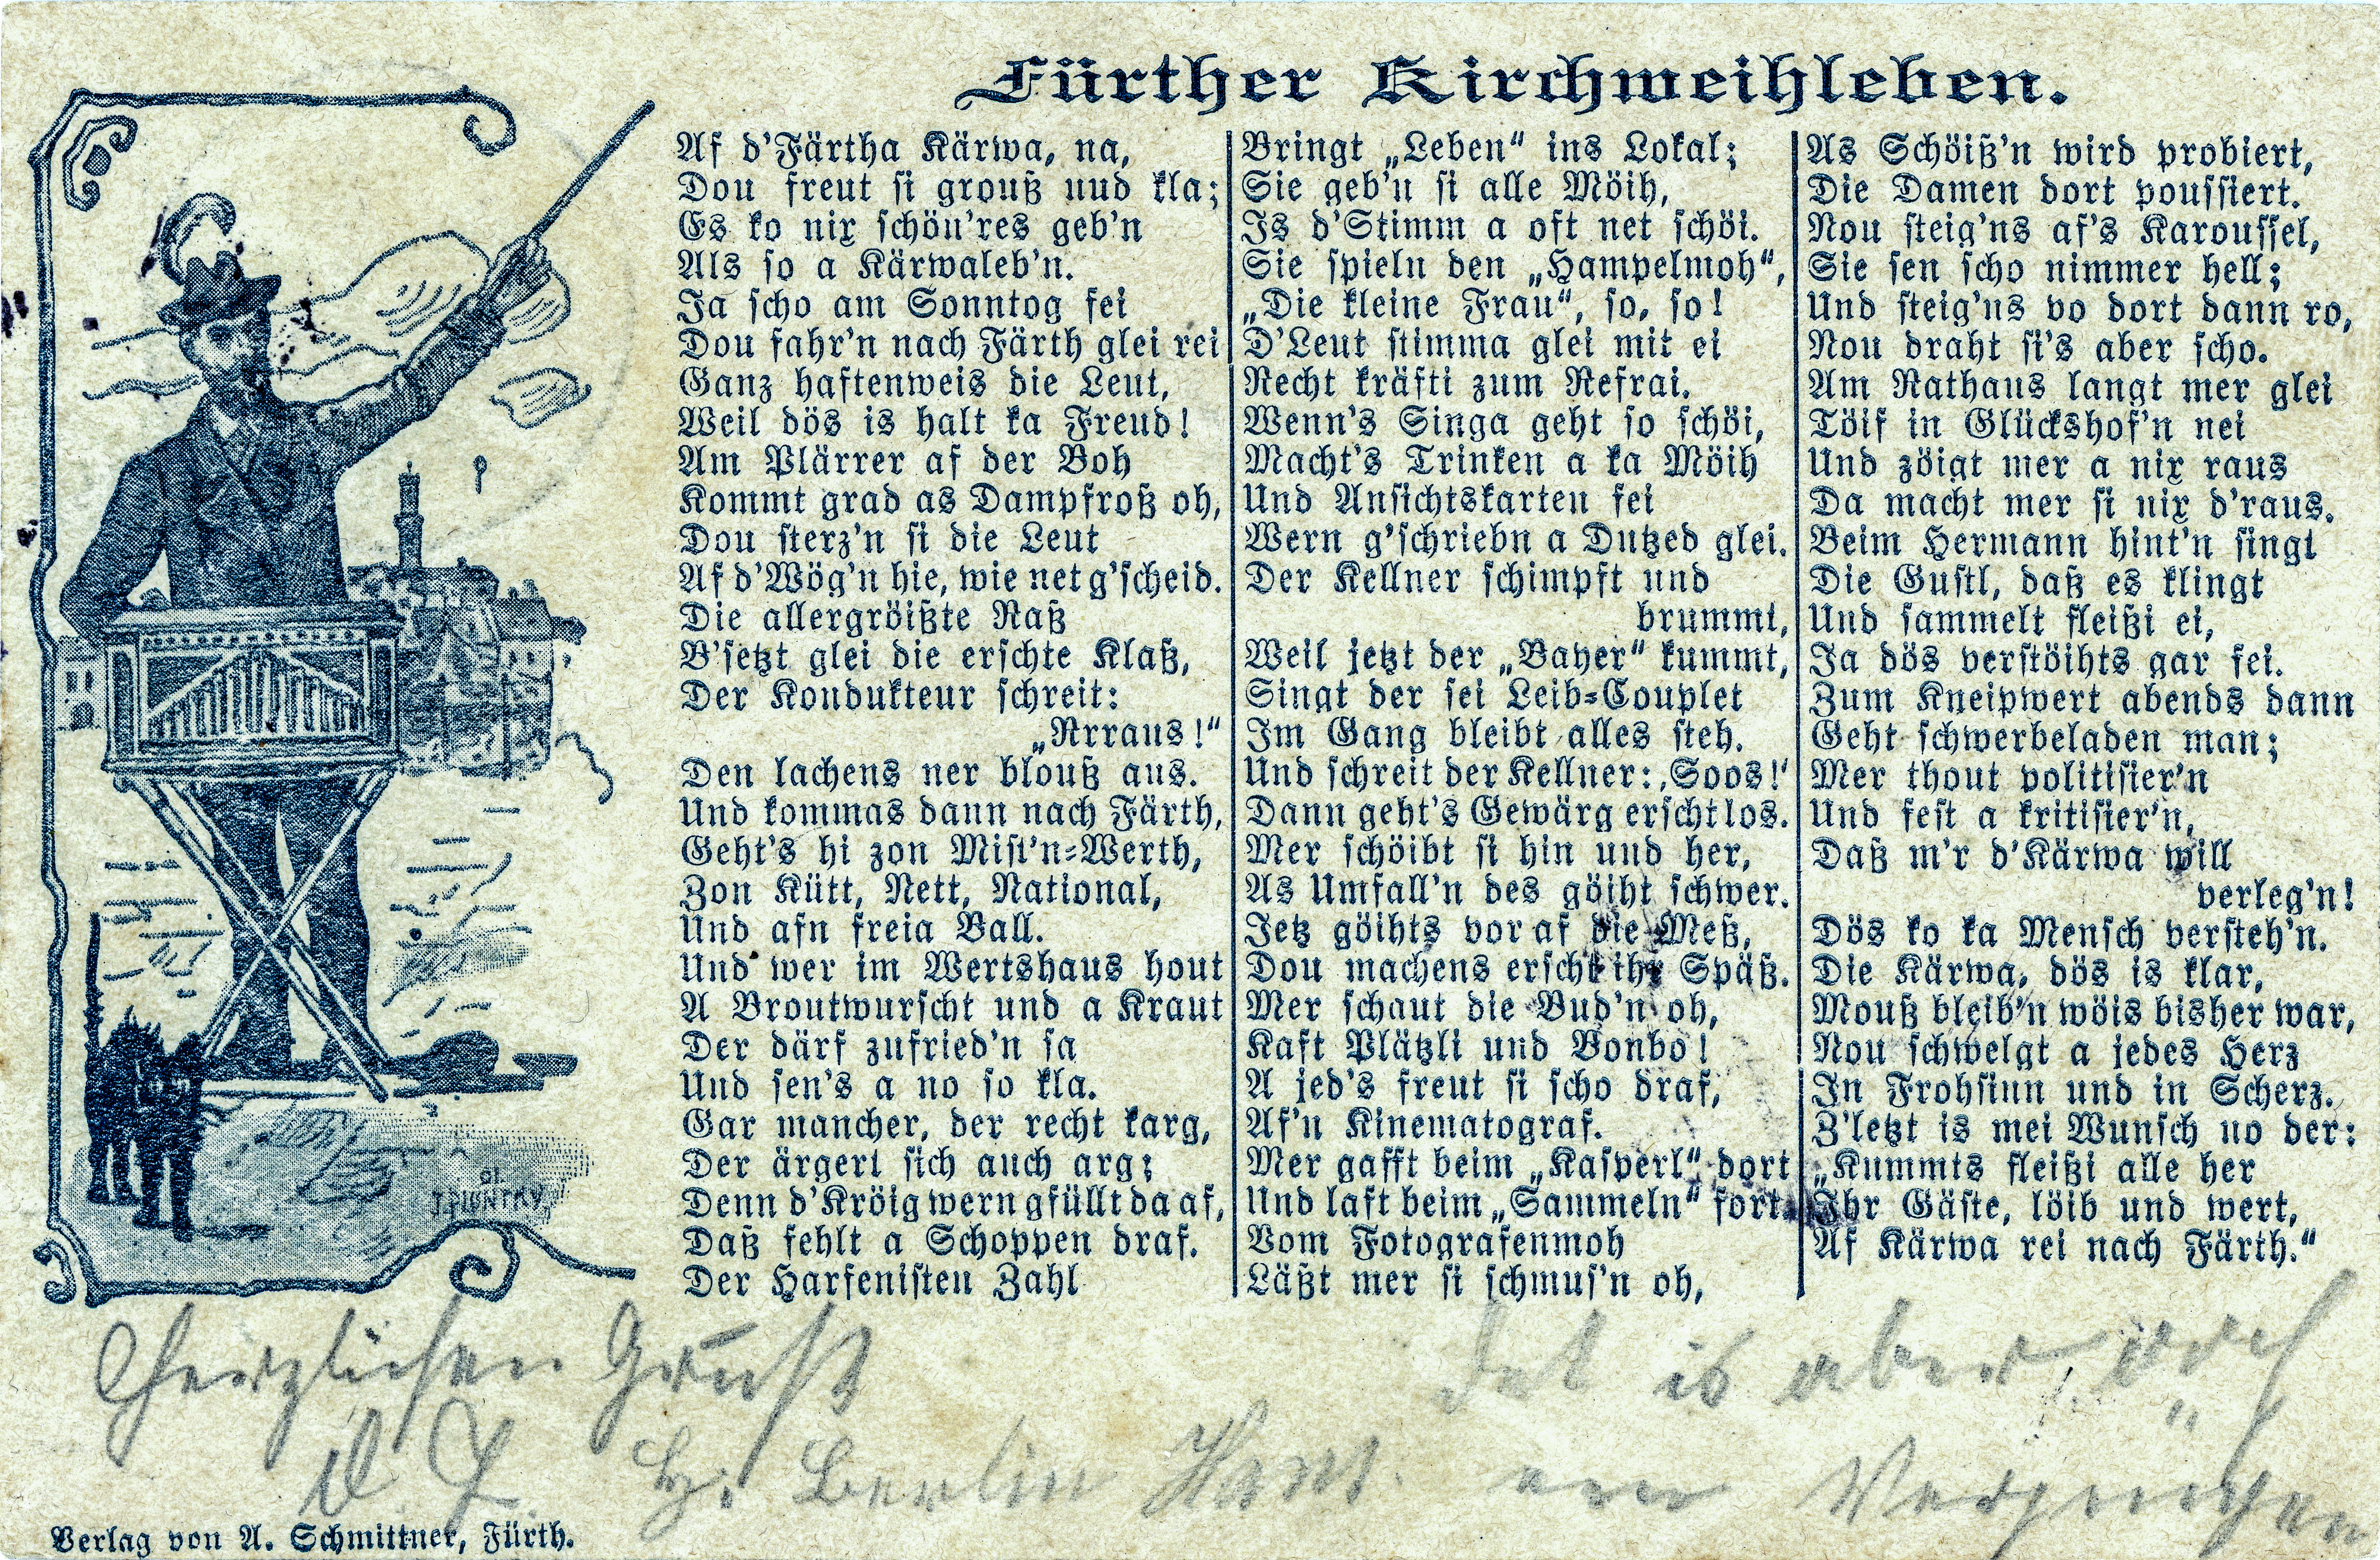 Fürther Kirchweihleben.
Af d'Färtha Kärwa, na,
Dou freut si grouß uud kla;
Es ko nix schön'res geb'n
Als so a Kärwaleb'n.
Ja scho am Sonntog fei
Dou fahr'n nach Färth glei rei
Ganz haftenweis die Leut,
Weil dös is halt ka Freud!
Am Plärrer af der Boh
Kommt grad as Dampfroß oh,
Dou sterz'n si die Leut
Af d'Wög'n hie, wie net g'scheid.
Die allergröißte Raß
B'setzt glei die erschte Klaß,
Der Kondukteur schreit:
„Rrraus!“
Den lachens ner blouß aus.
Und kommas dann nach Färth,
Geht's hi zon Mist'n-Werth,
Zon Kütt, Nett, National,
Und afn freia Ball.
Und wer im Wertshaus hout
A Broutwurscht und a Kraut
Der därf zufried'n sa
Und sen's a no so kla.
Gar mancher, der recht karg,
Der ärgert sich auch arg;
Denn d'Kröig wern gfüllt da af,
Daß fehlt a Schoppen draf.
Der Harfenisten Zahl
Bringt „Leben“ ins Lokal;
Sie geb'n si alle Möih,
Is d'Stimm a oft net schöi.
Sie spieln den „Hampelmoh“,
„Die kleine Frau“, so, so!
D'Leut stimma glei mit ei
Recht kräfti zum Refrai.
Wenn's Singa geht so schöi,
Macht's Trinken a ka Möih
Und Ansichtskarten fei
Wern g'schriebn a Dutzed glei.
Der Kellner schimpft und
brummt,
Weil jetzt der „Bayer“ kummt,
Singt der sei Leib-Couplet
Im Gang bleibt alles steh.
Und schreit der Kellner: ‚Soos!‘
Dann geht's Gewärg erscht los.
Mer schöibt si hin und her,
As Umfall'n des göiht schwer.
Jetz göihts vor af die Meß,
Dou machens erscht ihr Späß.
Mer schaut die Bud'n oh,
Kaft Plätzli und Bonbo!
A jed's freut si scho draf,
Af'n Kinematograf.
Mer gafft beim „Kasperl“ dort
Und laft beim „Sammeln“ fort.
Vom Fotografenmoh
Läßt mer si schmus'n oh,
As Schöiß'n wird probiert,
Die Damen dort poussiert.
Nou steig'ns af's Karoussel,
Sie sen scho nimmer hell;
Und steig'ns vo dort dann ro,
Nou draht si's aber scho.
Am Rathaus langt mer glei
Töif in Glückshof'n nei
Und zöigt mer a nix raus
Da macht mer si nix d'raus.
Beim Hermann hint'n singt
Die Gustl, daß es klingt
Und sammelt fleißi ei,
Ja dös verstöihts gar fei.
Zum Kneipwert abends dann
Geht schwerbeladen man;
Mer thout politisier'n
Und fest a kritisier'n,
Daß m'r d'Kärwa will
verleg'n!
Dös ko ka Mensch versteh'n.
Die Kärwa, dös is klar,
Mouß bleib'n wöis bisher war,
Nou schwelgt a jedes Herz
In Frohsinn und in Scherz.
Z'letzt is mei Wunsch no der:
„Kummts fleißi alle her
Ihr Gäste, löib und wert,
Af Kärwa rei nach Färth.“
Herzlichen Gruß
Det is aber
Berlin
een Vergniegen
Verlag von A. Schmittner, Fürth.